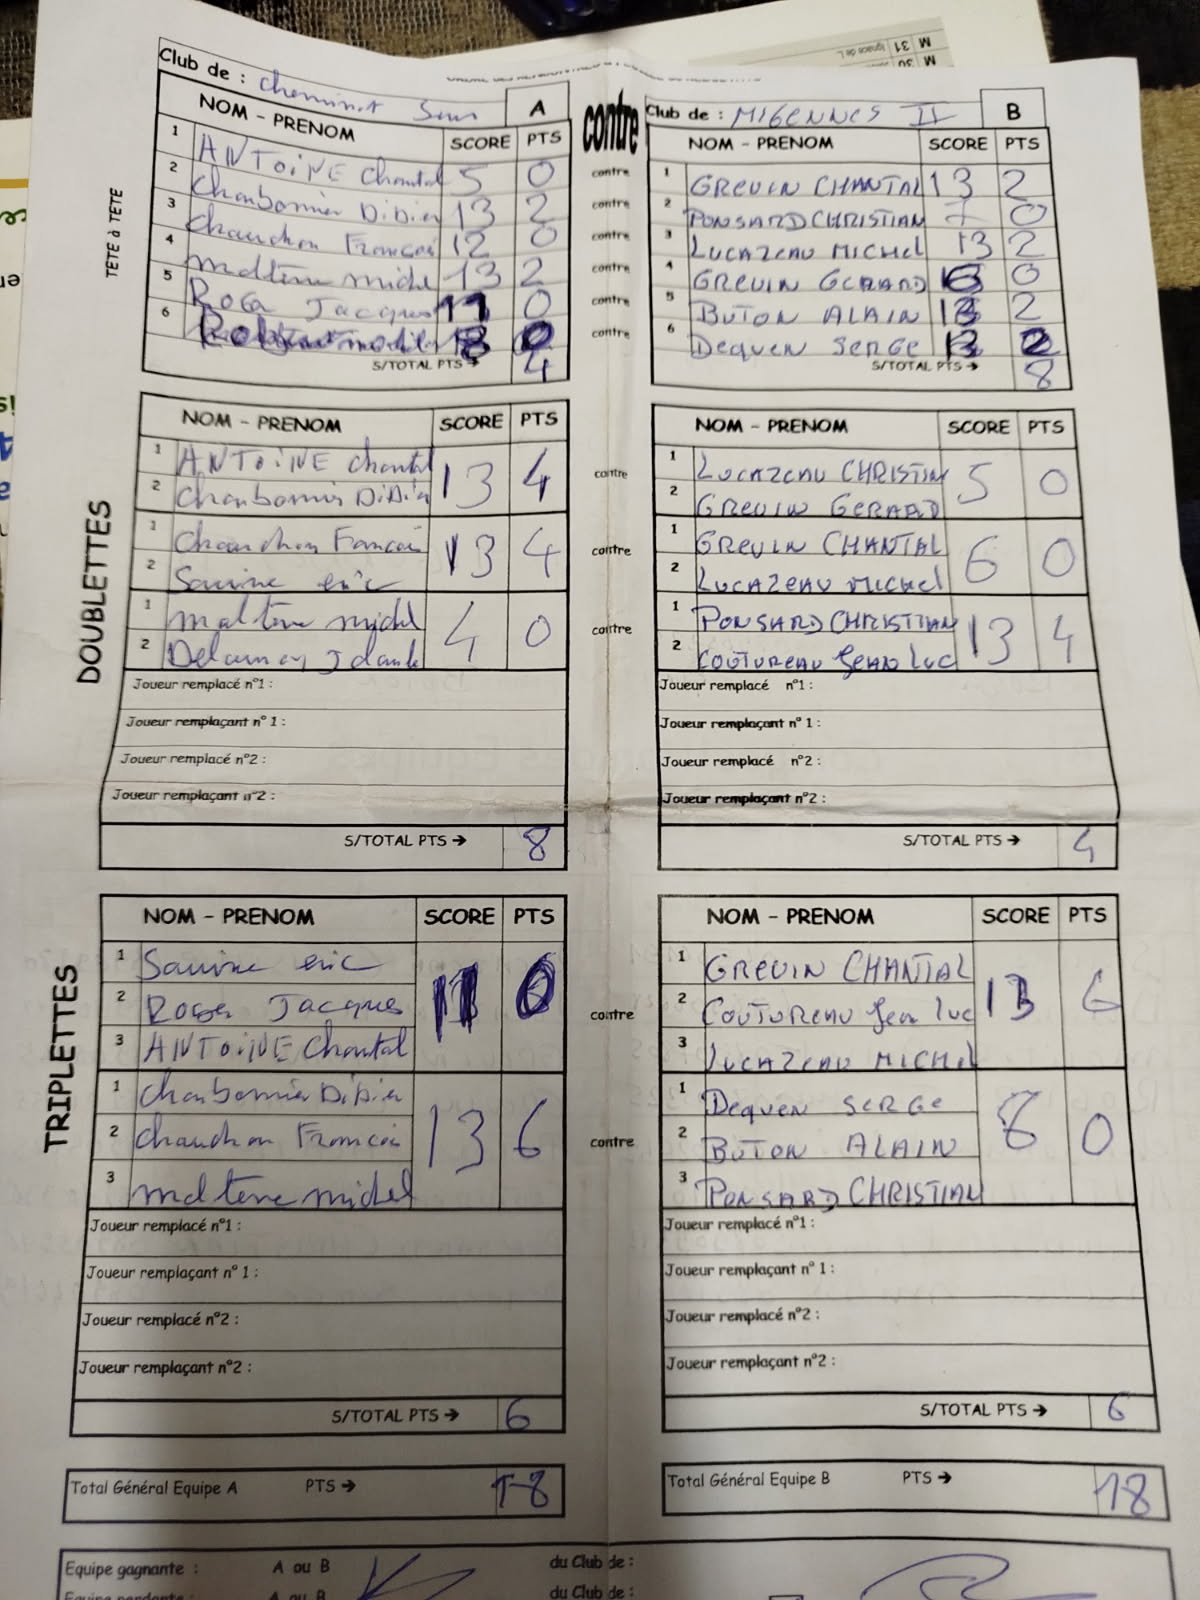 Club de : Cheminot Sens A contre Club de : MIGENNES II B
NOM - PRENOM SCORE PTS NOM - PRENOM SCORE PTS
TETE à TETE
1 ANTOINE Chantal 5 0 contre 1 GREVIN CHANTAL 13 2
2 Charbonnier Didier 13 2 contre 2 PONSARD CHRISTIAN 7 0
3 Chauchon François 12 0 contre 3 LUCAZEAU MICHEL 13 2
4 maltene michel 13 2 contre 4 GREVIN GERARD 0
5 Roger Jacques 11 0 contre 5 BUTON ALAIN 13 2
6 0 contre 6 DEQUEN SERGE 13 2
S/TOTAL PTS → 4 S/TOTAL PTS → 8
DOUBLETTES
NOM - PRENOM SCORE PTS NOM - PRENOM SCORE PTS
1 ANTOINE Chantal 13 4 contre 1 LUCAZEAU CHRISTIAN 5 0
2 Charbonnier Didier 2 GREVIN GERARD
1 Chauchon François 13 4 contre 1 GREVIN CHANTAL 6 0
2 Savine eric 2 LUCAZEAU MICHEL
1 maltene michel 4 0 contre 1 PONSARD CHRISTIAN 13 4
2 Delaunay 2 COUTUREAU Jean Luc
Joueur remplacé n°1 : Joueur remplacé n°1 :
Joueur remplaçant n° 1 : Joueur remplaçant n° 1 :
Joueur remplacé n°2 : Joueur remplacé n°2 :
Joueur remplaçant n°2 : Joueur remplaçant n°2 :
S/TOTAL PTS → 8 S/TOTAL PTS → 4
TRIPLETTES
NOM - PRENOM SCORE PTS NOM - PRENOM SCORE PTS
1 Savine eric 11 0 contre 1 GREVIN CHANTAL 13 6
2 Roger Jacques 2 COUTUREAU Jean Luc
3 ANTOINE Chantal 3 LUCAZEAU MICHEL
1 Charbonnier Didier 13 6 contre 1 DEQUEN SERGE 8 0
2 Chauchon François 2 BUTON ALAIN
3 maltene michel 3 PONSARD CHRISTIAN
Joueur remplacé n°1 : Joueur remplacé n°1 :
Joueur remplaçant n° 1 : Joueur remplaçant n° 1 :
Joueur remplacé n°2 : Joueur remplacé n°2 :
Joueur remplaçant n°2 : Joueur remplaçant n°2 :
S/TOTAL PTS → 6 S/TOTAL PTS → 6
Total Général Equipe A PTS → 18 Total Général Equipe B PTS → 18
Equipe gagnante : A ou B du Club de :
Equipe perdante : A ou B du Club de :